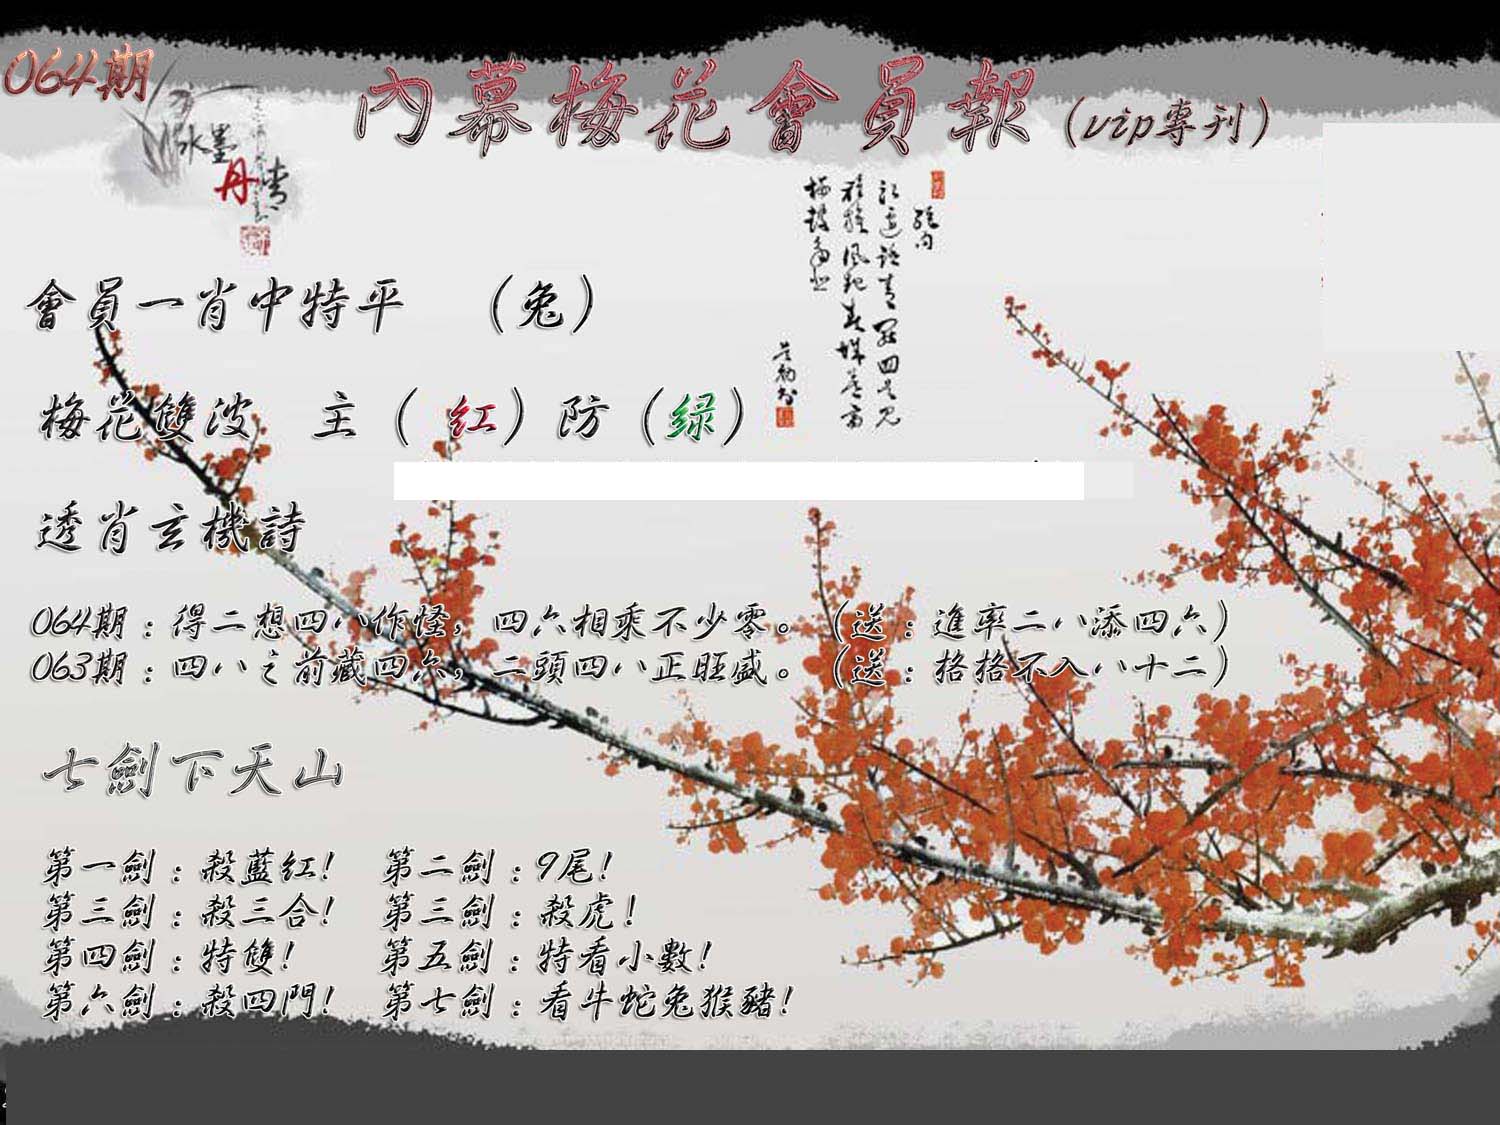 064期
內幕梅花會員報（vip專刊）
水墨
丹青
會員一肖中特平　（兔）
梅花雙波　主（ 紅）防（绿）
透肖玄機詩
064期：得二想四八作怪，四六相乘不少零。（送：進率二八添四六）
063期：四八之前藏四六，二頭四八正旺盛。（送：格格不入八十二）
七劍下天山
第一劍：殺藍紅！　第二劍：9尾！
第三劍：殺三合！　第三劍：殺虎！
第四劍：特雙！　第五劍：特看小數！
第六劍：殺四門！　第七劍：看牛蛇兔猴豬！